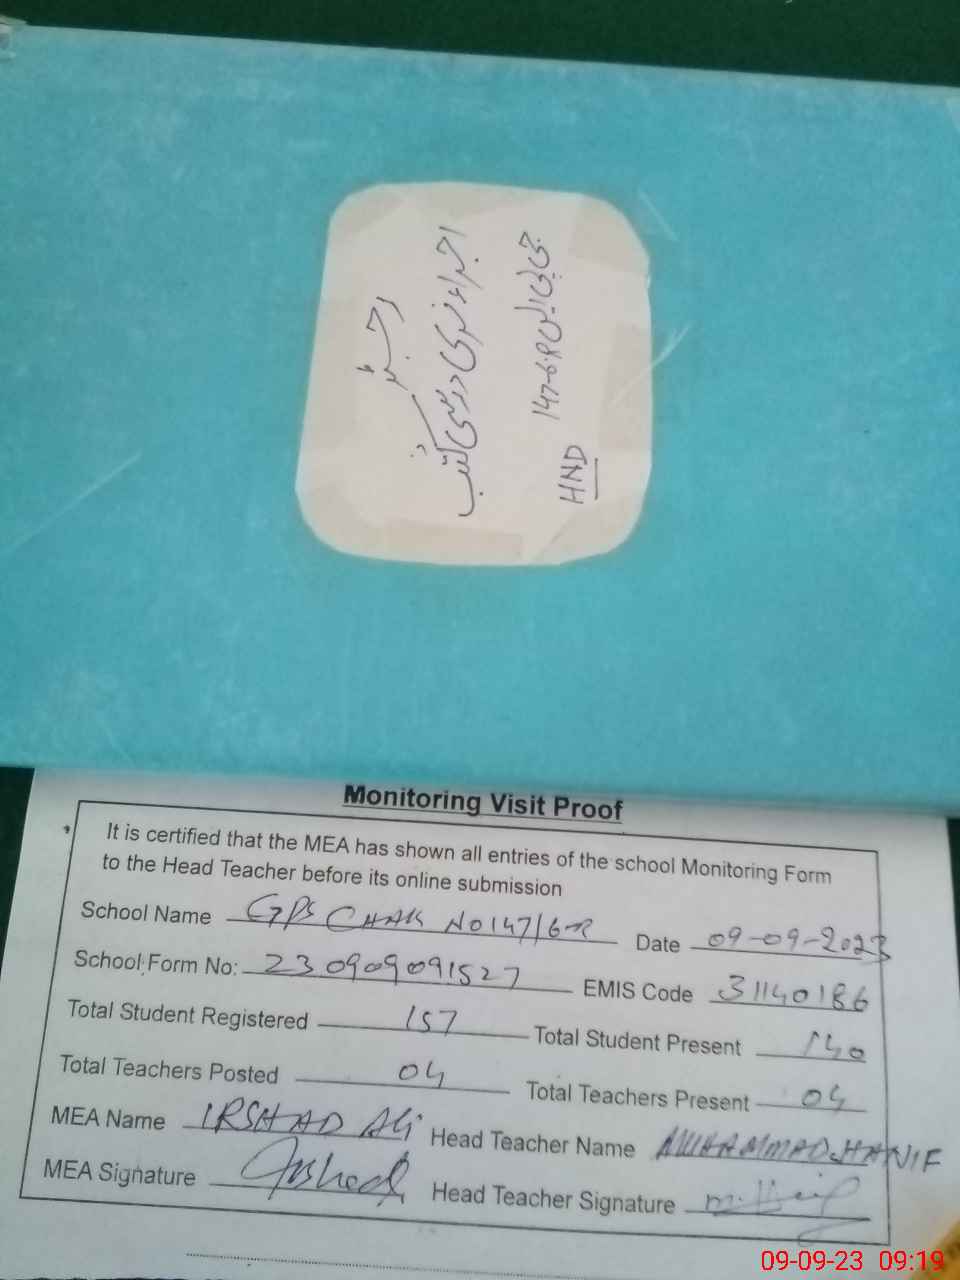 رجسٹر
اجراء فری درسی کتب
جی پی ایس 147-6.R
HND
Monitoring Visit Proof
It is certified that the MEA has shown all entries of the school Monitoring Form
to the Head Teacher before its online submission
School Name GPS CHAK NO 147/6-R Date 09-09-2023
School Form No: 230909091527 EMIS Code 31140186
Total Student Registered 157 Total Student Present 140
Total Teachers Posted 04 Total Teachers Present 04
MEA Name IRSHAD Ali Head Teacher Name MUHAMMAD HANIF
MEA Signature Irshad Head Teacher Signature m. Hanif
09-09-23 09:19